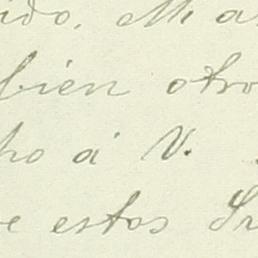 ido. Ma
bién otro
ho á V.
e estos Sr